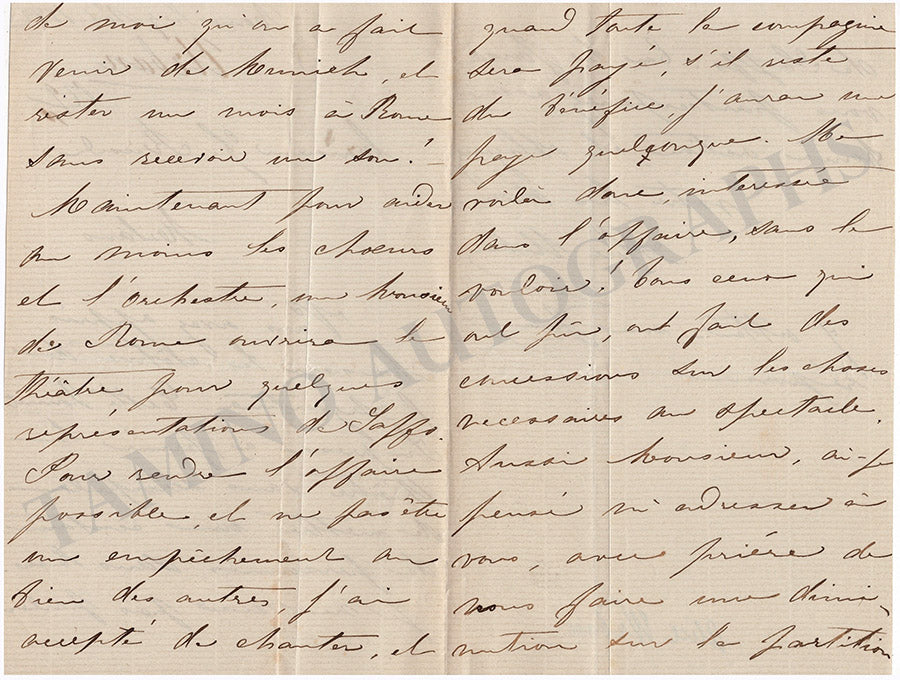 de moi qu'on a fait
venir de Munich, et
rester un mois à Rome
sans recevoir un sou! –
Maintenant pour aider
au moins les chœurs
et l'Orchestre, un Monsieur
de Rome ouvrira le
théâtre pour quelques
représentations de Saffo.
Pour rendre l'affaire
possible, et ne pas être
un empêchement au
bien des autres, j'ai
accepté de chanter, et
quand toute la compagnie
sera payé, s'il reste
du bénéfice, j'aurai une
paye quelconque. Me
voilà donc, interessée
dans l'affaire, sans le
vouloir! Tous ceux qui
ont pû, ont fait des
concessions sur les choses
necessaires au spectacle.
Aussi Monsieur, ai-je
pensé m'adresser à
vous, avec prière de
nous faire une dimi-
nution sur la partition
TAMINO AUTOGRAPHS